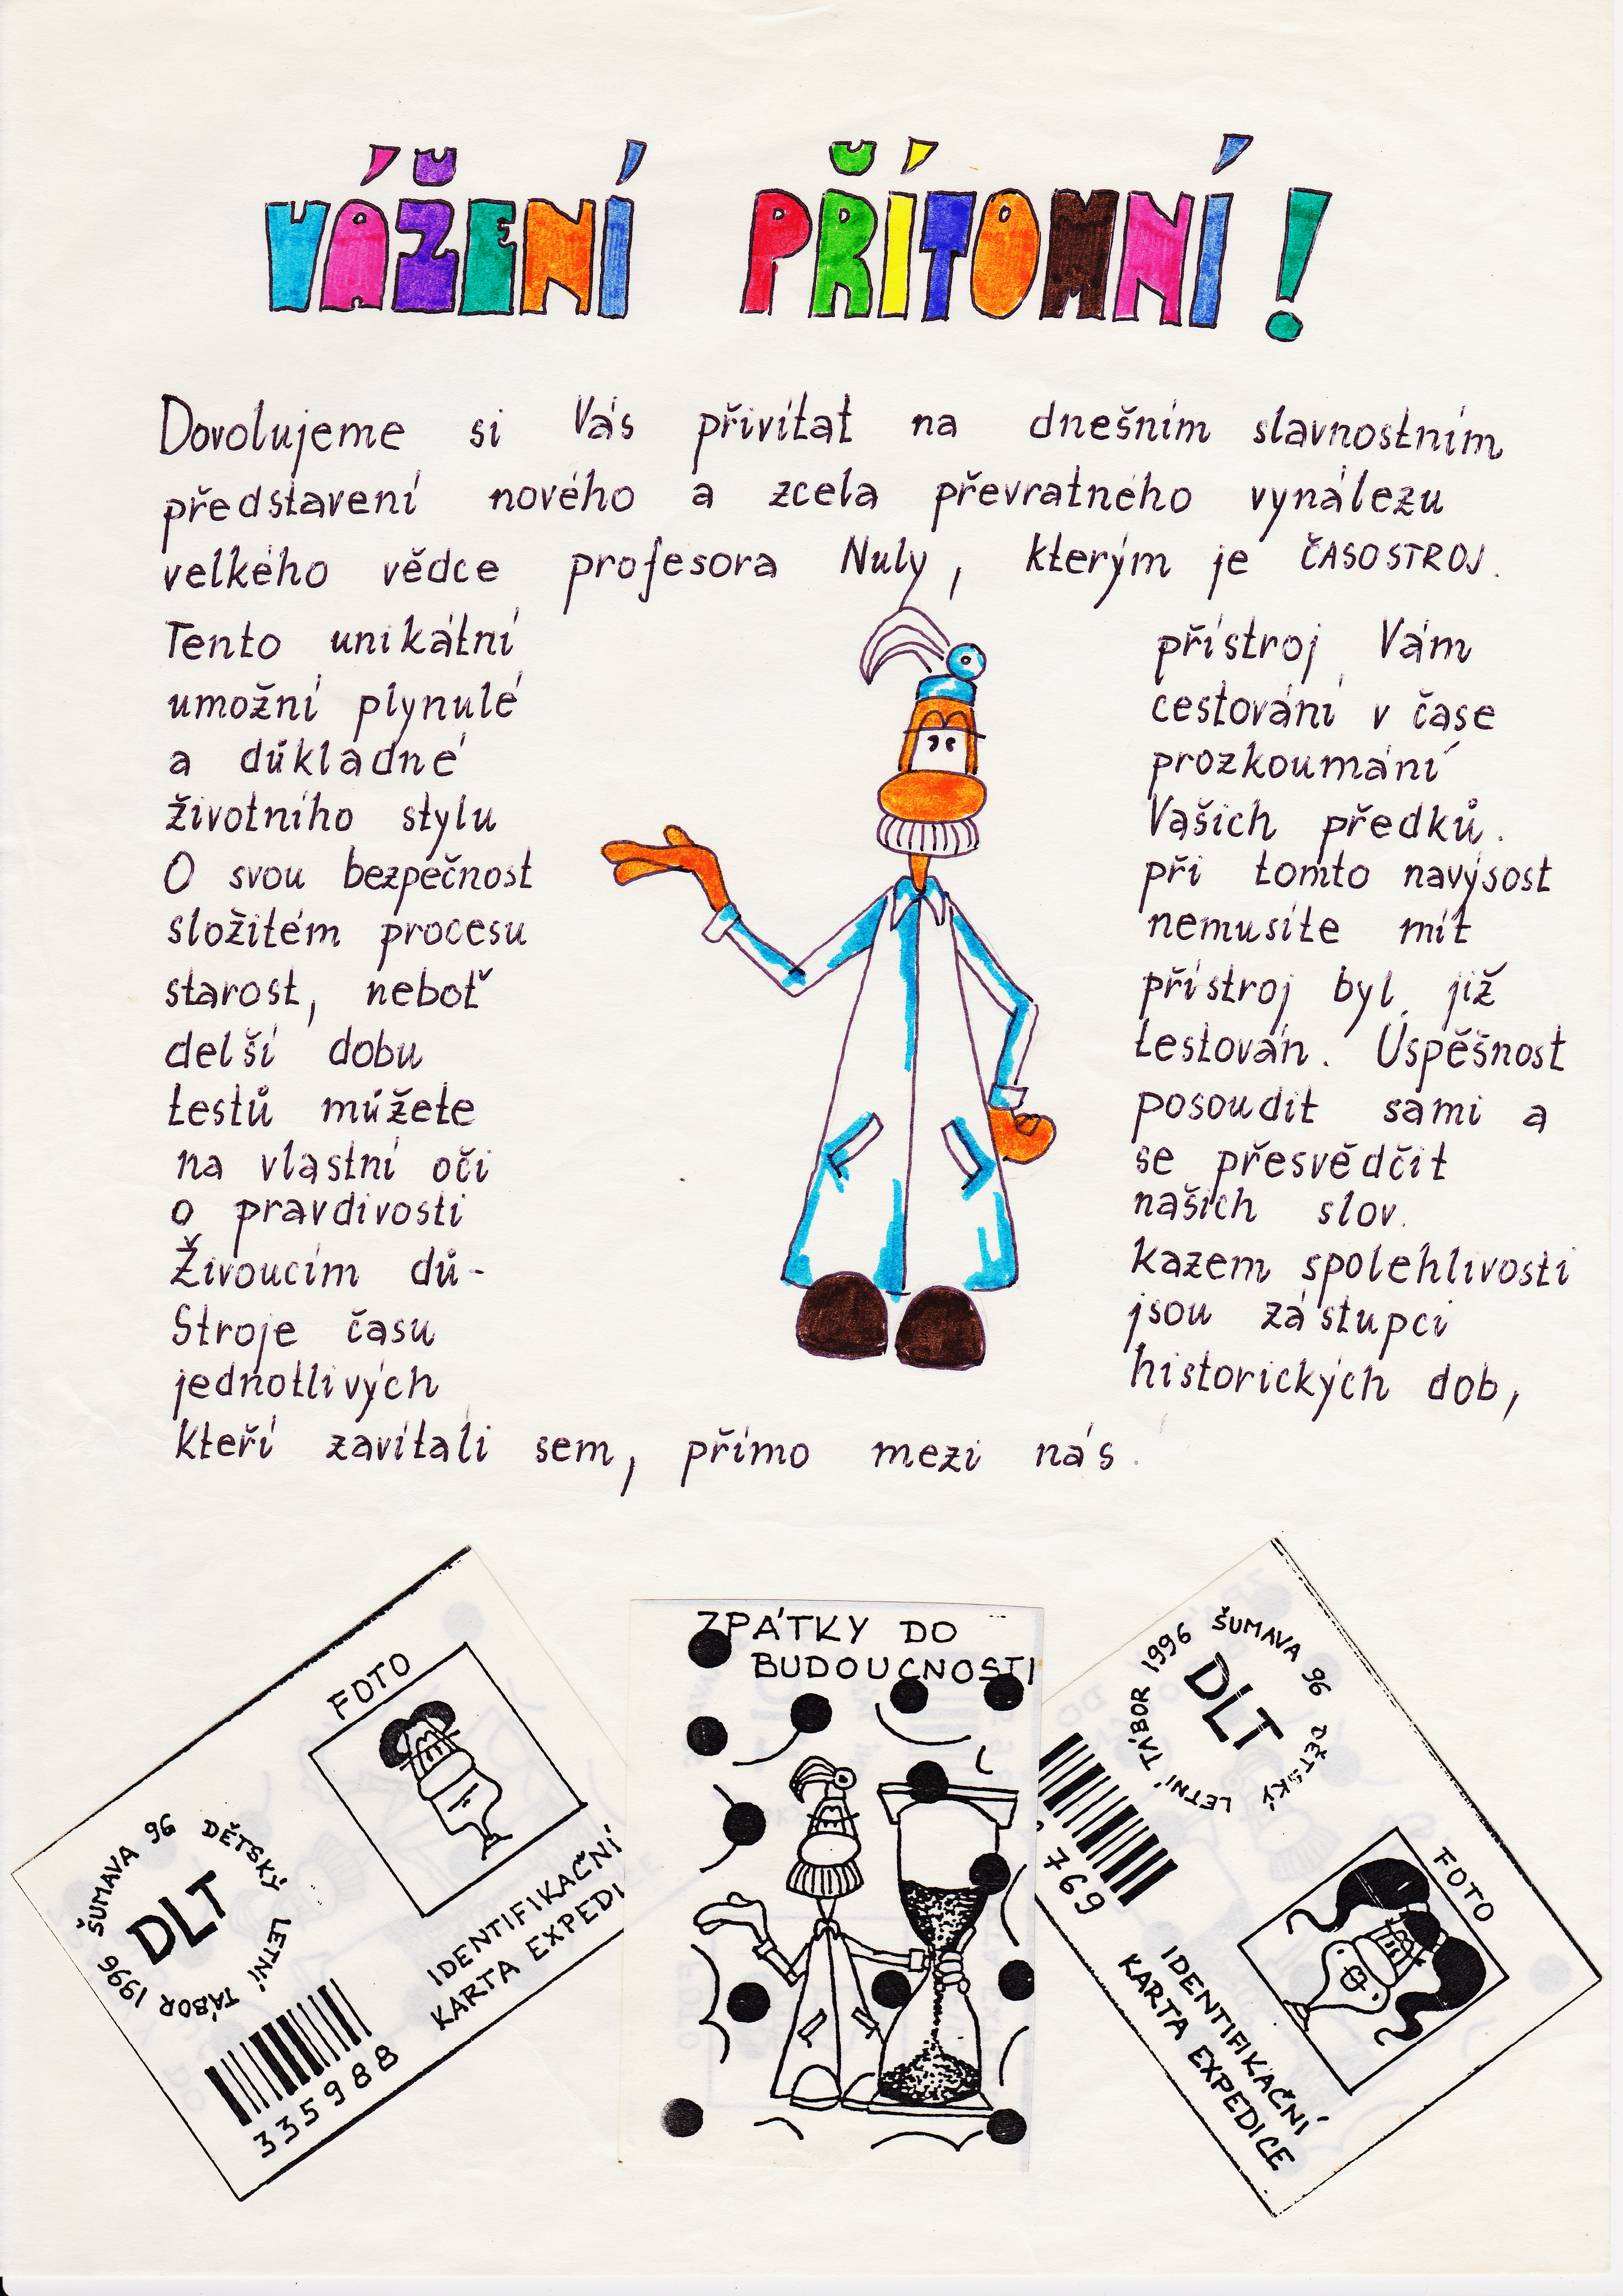 VÁŽENÍ PŘÍTOMNÍ!
Dovolujeme si Vás přivítat na dnešním slavnostním
představení nového a zcela převratného vynálezu
velkého vědce profesora Nuly, kterým je ČASOSTROJ.
Tento unikátní přístroj Vám
umožní plynulé cestování v čase
a důkladné prozkoumání
životního stylu Vašich předků.
O svou bezpečnost při tomto navýsost
složitém procesu nemusíte mít
starost, neboť přístroj byl již
delší dobu testován. Úspěšnost
testů můžete posoudit sami a
na vlastní oči se přesvědčit
o pravdivosti našich slov.
Živoucím dů- kazem spolehlivosti
Stroje času jsou zástupci
jednotlivých historických dob,
kteří zavítali sem, přímo mezi nás.
FOTO
ŠUMAVA 96 DĚTSKÝ LETNÍ TÁBOR 1996
DLT
335988
IDENTIFIKAČNÍ
KARTA EXPEDI
ZPÁTKY DO
BUDOUCNOSTI
ŠUMAVA 96 DĚTSKÝ LETNÍ TÁBOR 1996
DLT
769
FOTO
IDENTIFIKAČNÍ
KARTA EXPEDICE